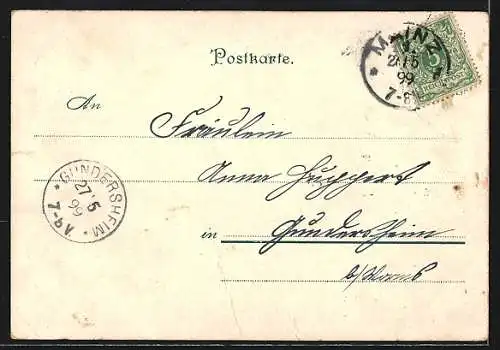 Postkarte.
MAINZ
5
REICHSPOST
99
7-8
An
Fräulein
Anna Huppert
in Gundersheim
b/Worms
GUNDERSHEIM
27/5
99
7-9 V.